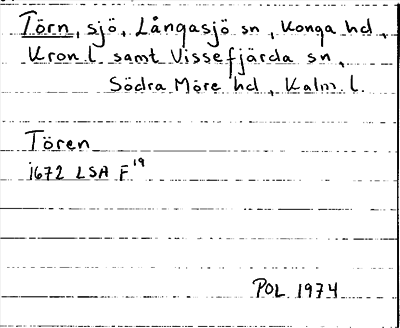 Törn, sjö, Långasjö sn, Konga hd,
Kron. l. samt Vissefjärda sn,
Södra Möre hd, Kalm. l.
Tören
1672 LSA F¹⁹
POL 1974